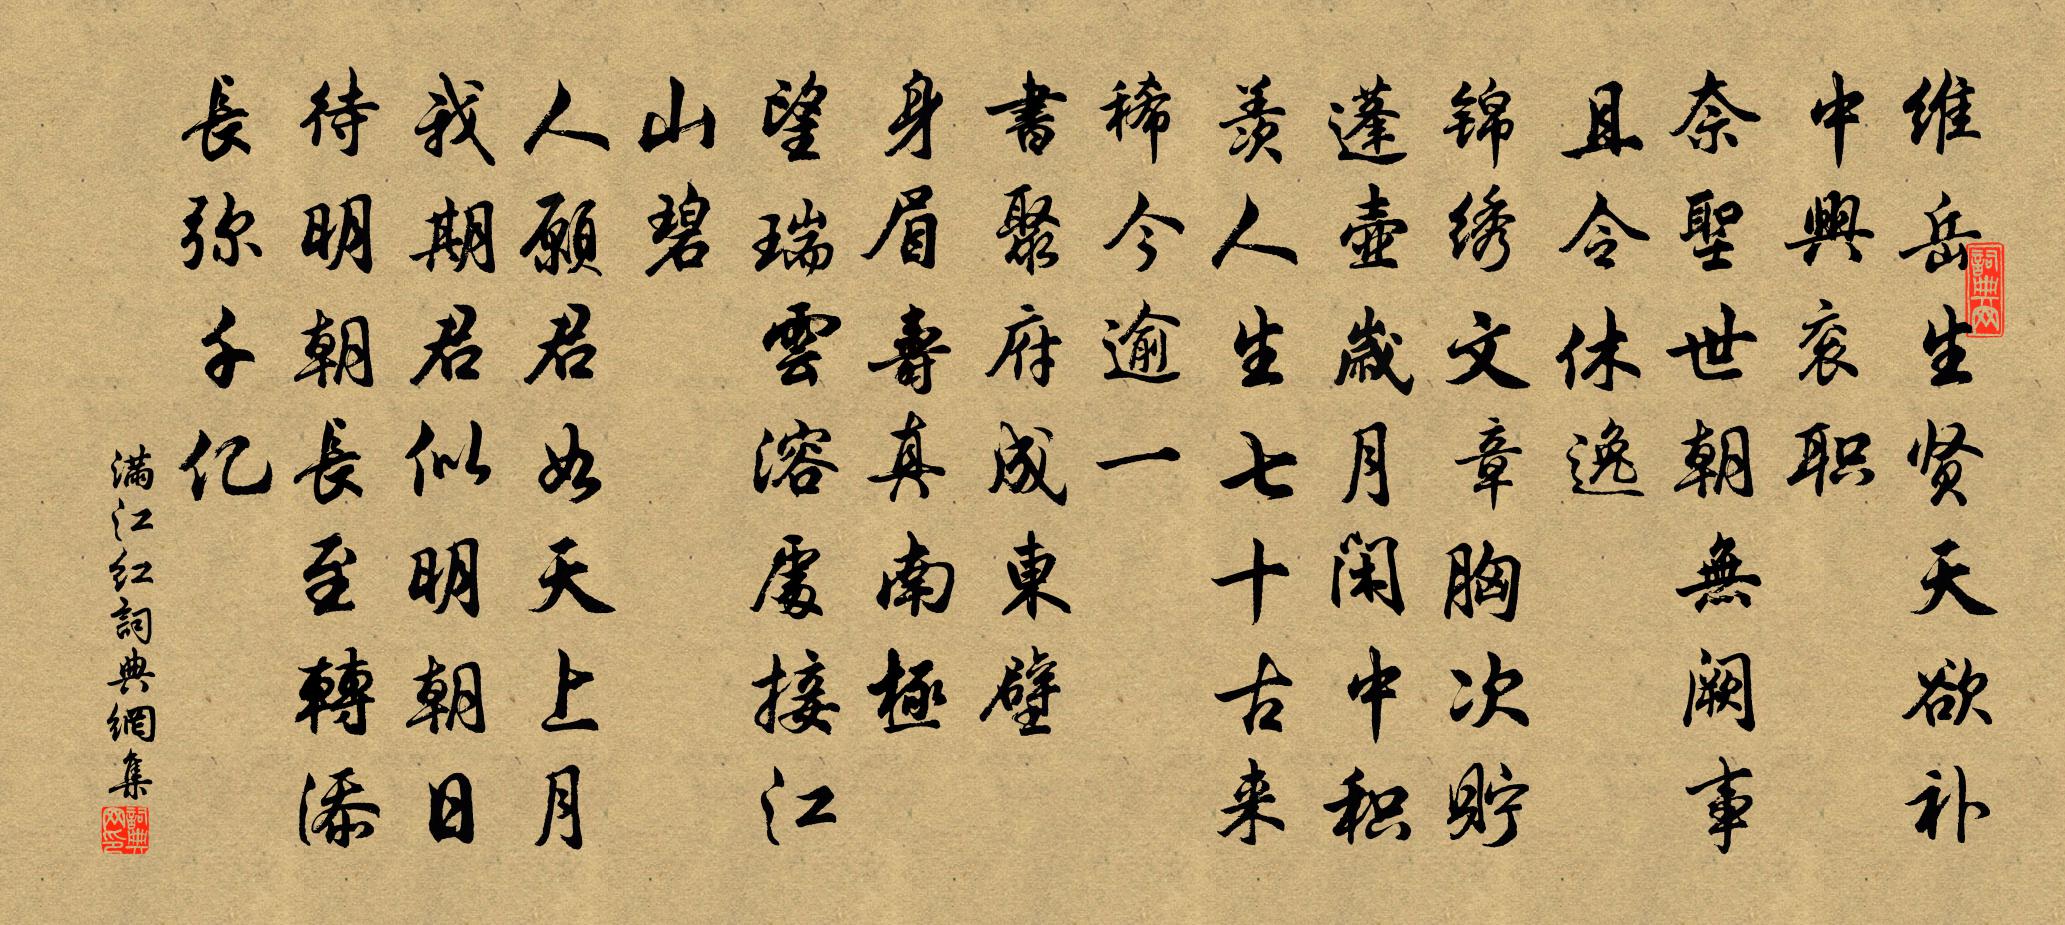 维岳生贤天欲补
中興衮职
奈聖世朝無阙事
且令休逸
锦绣文章胸次贮
蓬壺歲月闲中积
羡人生七十古来
稀今逾一
書聚府成東壁
身眉壽真南極
望瑞雲溶處接江
山碧
人願君如天上月
我期君似明朝日
待明朝長至轉添
長弥千亿
满江红詞典網集
詞典网
詞典网印